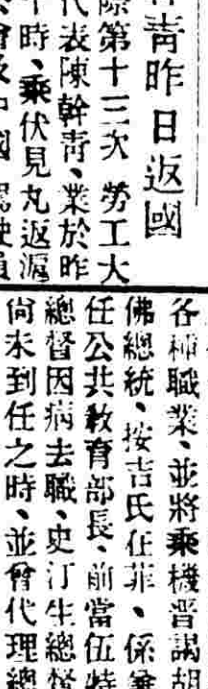 青昨日返國
際第十三次 勞工大
代表陳幹青、業於昨
時、乘伏見丸返滬
各種職業、並將乘機晋謁胡
佛總統、按吉氏任菲、係兼
任公共敎育部長、前當伍特
總督因病去職、史汀生總督
尙未到任之時、並曾代理總